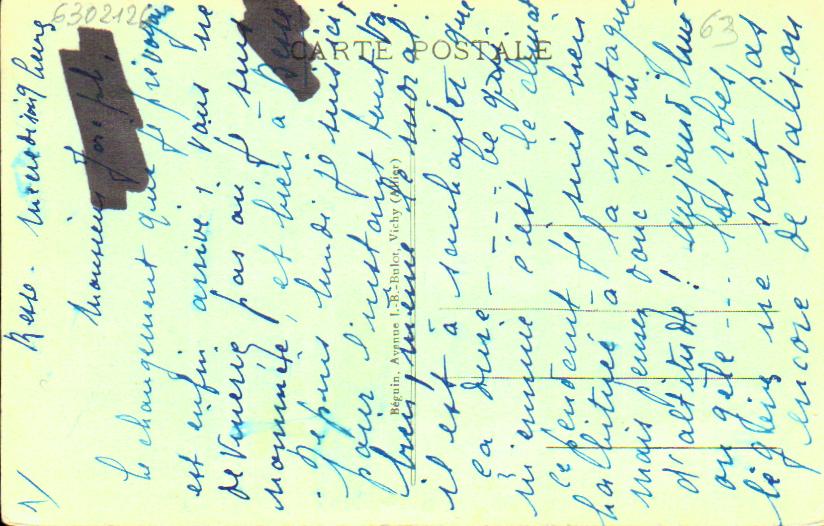 6302126
63
CARTE POSTALE
Béguin, Avenue J.-B.-Bulot, Vichy (Allier)
1/
Besse - Mercredi 19 heures
Monsieur Joseph,
Le changement que je prévoyais
est enfin arrivé ; vous ne
devinerez pas où je suis
nommée, et bien à Besse
depuis lundi je suis ici,
pour l'instant tout va
bien, même le moral.
il est à souhaiter que
ça dure - Ce qui
m'ennuie c'est le climat
cependant je suis bien
habituée à la montagne
mais pensez donc 1080 m
d'altitude ! aujourd'hui
on gèle --- les robes
légères ne sont pas
encore de saison